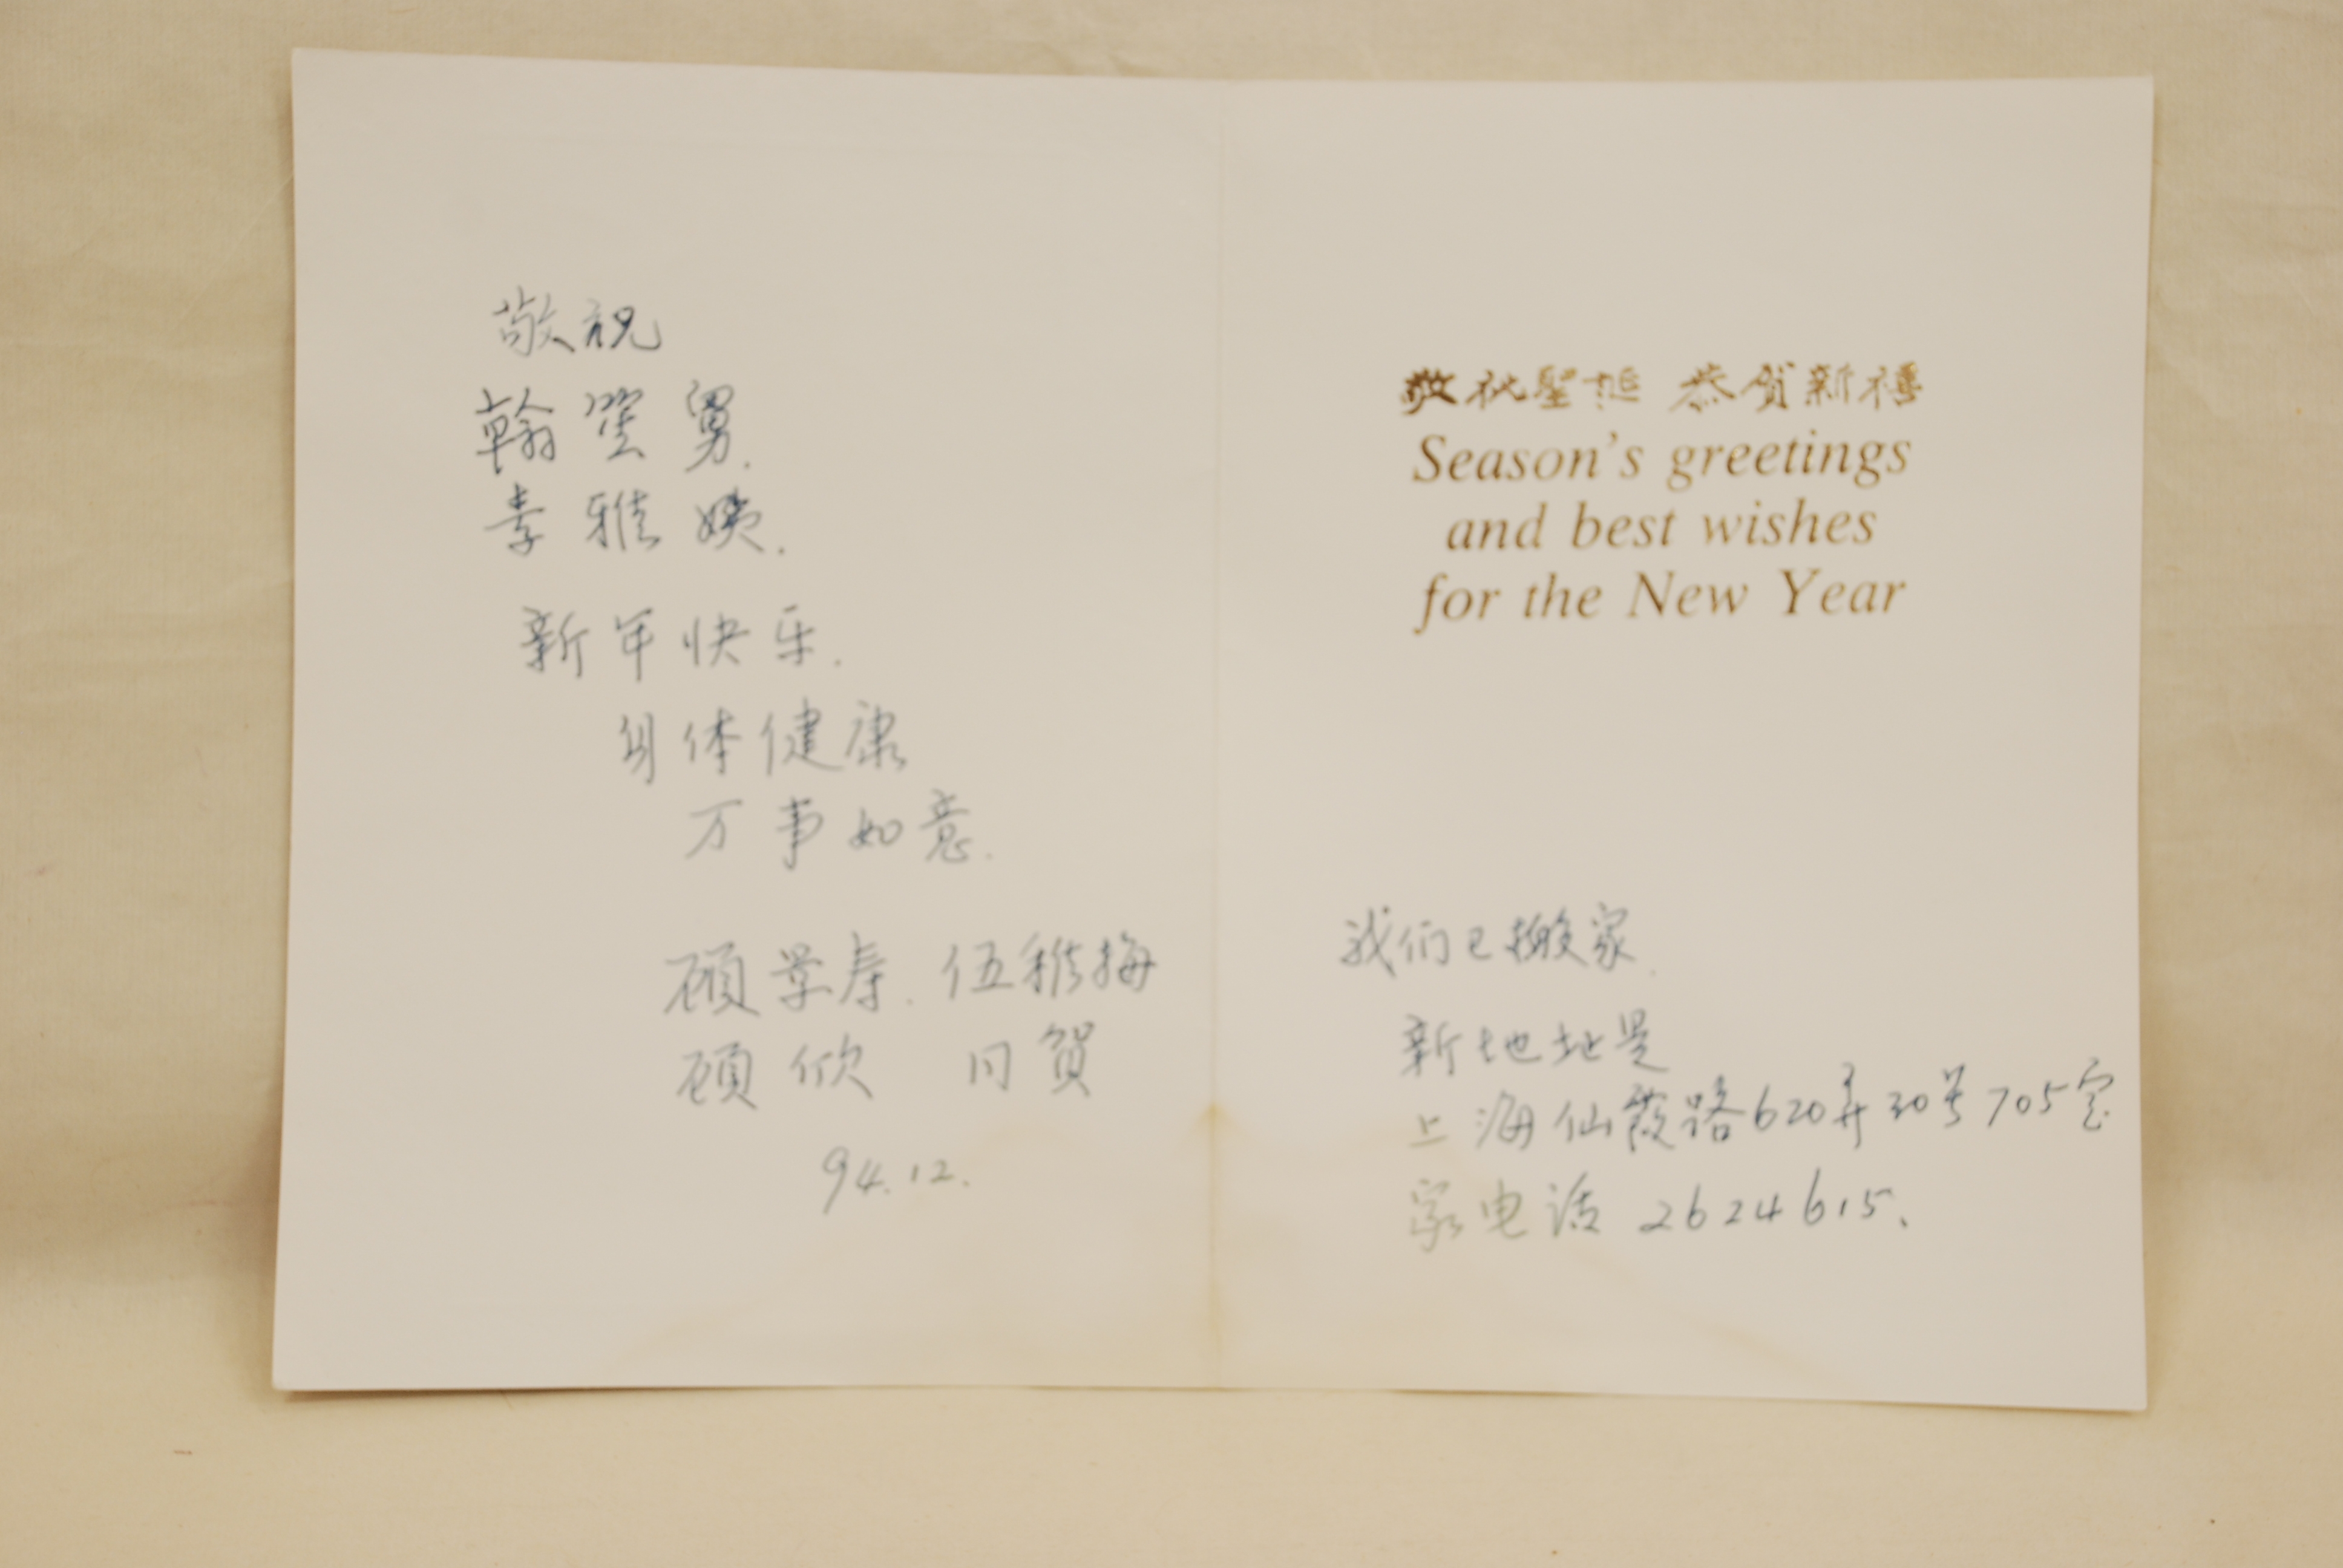 敬祝
翰笙舅.
李雅姨.
新年快乐.
身体健康
万事如意.
顾学寿. 伍稚梅
顾欣 同贺
94.12.
敬祝聖誕 恭贺新禧
Season's greetings
and best wishes
for the New Year
我们已搬家.
新地址是
上海仙霞路620弄30号705室
家电话 2624615.